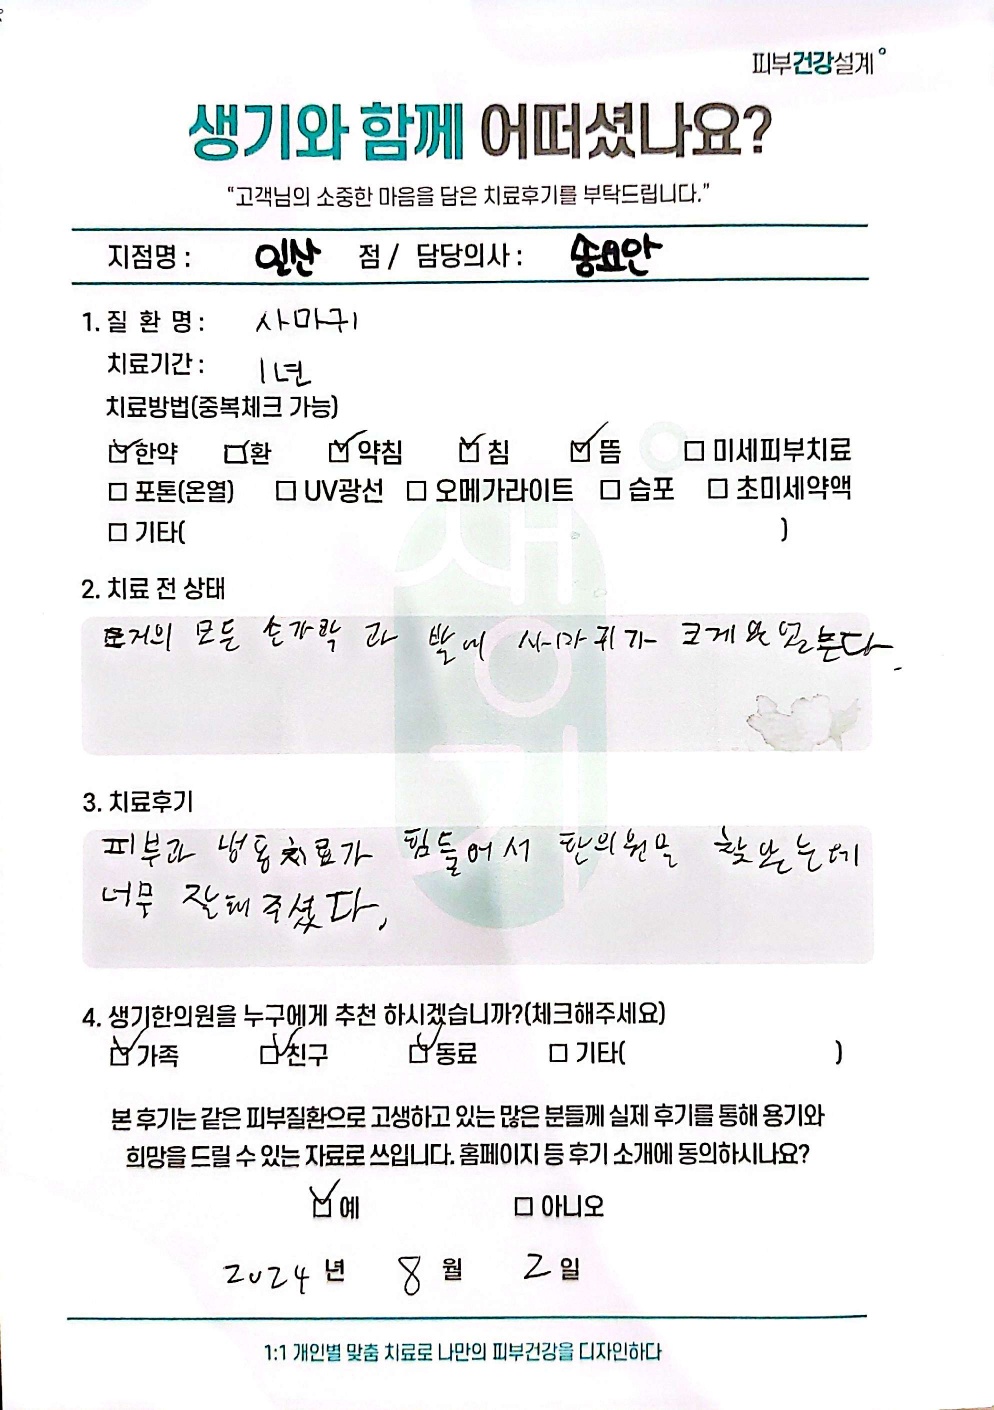 피부건강설계
생기와 함께 어떠셨나요?
"고객님의 소중한 마음을 담은 치료후기를 부탁드립니다."
지점명 : 일산 점 / 담당의사 : 송요안
1. 질 환 명 : 사마귀
치료기간 : 1년
치료방법(중복체크 가능)
☑ 한약 ☑ 환 ☑ 약침 ☑ 침 ☑ 뜸 ☐ 미세피부치료
☐ 포톤(온열) ☐ UV광선 ☐ 오메가라이트 ☐ 습포 ☐ 초미세약액
☐ 기타( )
2. 치료 전 상태
거의 모든 손가락 과 발에 사마귀가 크게
생기
3. 치료후기
피부과 냉동치료가 힘들어서 한의원을 찾았는데
너무 잘해주셨다.
4. 생기한의원을 누구에게 추천 하시겠습니까?(체크해주세요)
☑ 가족 ☑ 친구 ☑ 동료 ☐ 기타( )
본 후기는 같은 피부질환으로 고생하고 있는 많은 분들께 실제 후기를 통해 용기와
희망을 드릴 수 있는 자료로 쓰입니다. 홈페이지 등 후기 소개에 동의하시나요?
☑ 예 ☐ 아니오
2024 년 8 월 2 일
1:1 개인별 맞춤 치료로 나만의 피부건강을 디자인하다